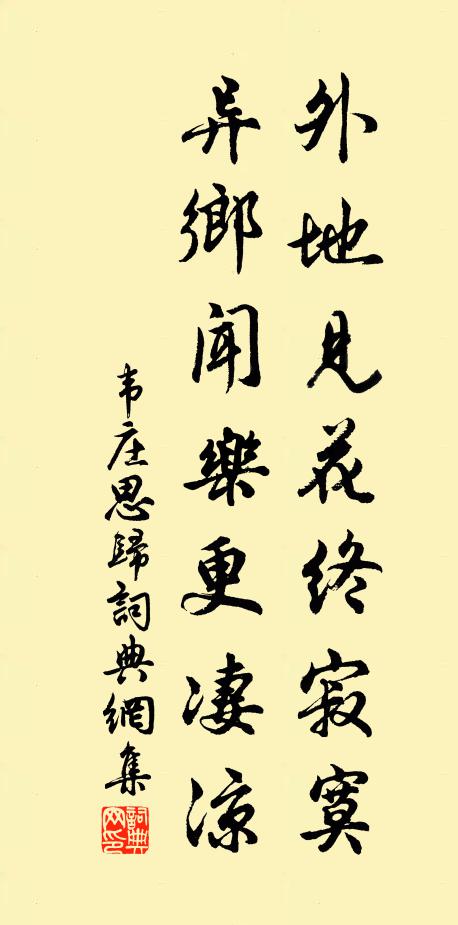 外地見花終寂寞
异鄉聞樂更凄涼
韦庄思歸詞典網集
詞典网印